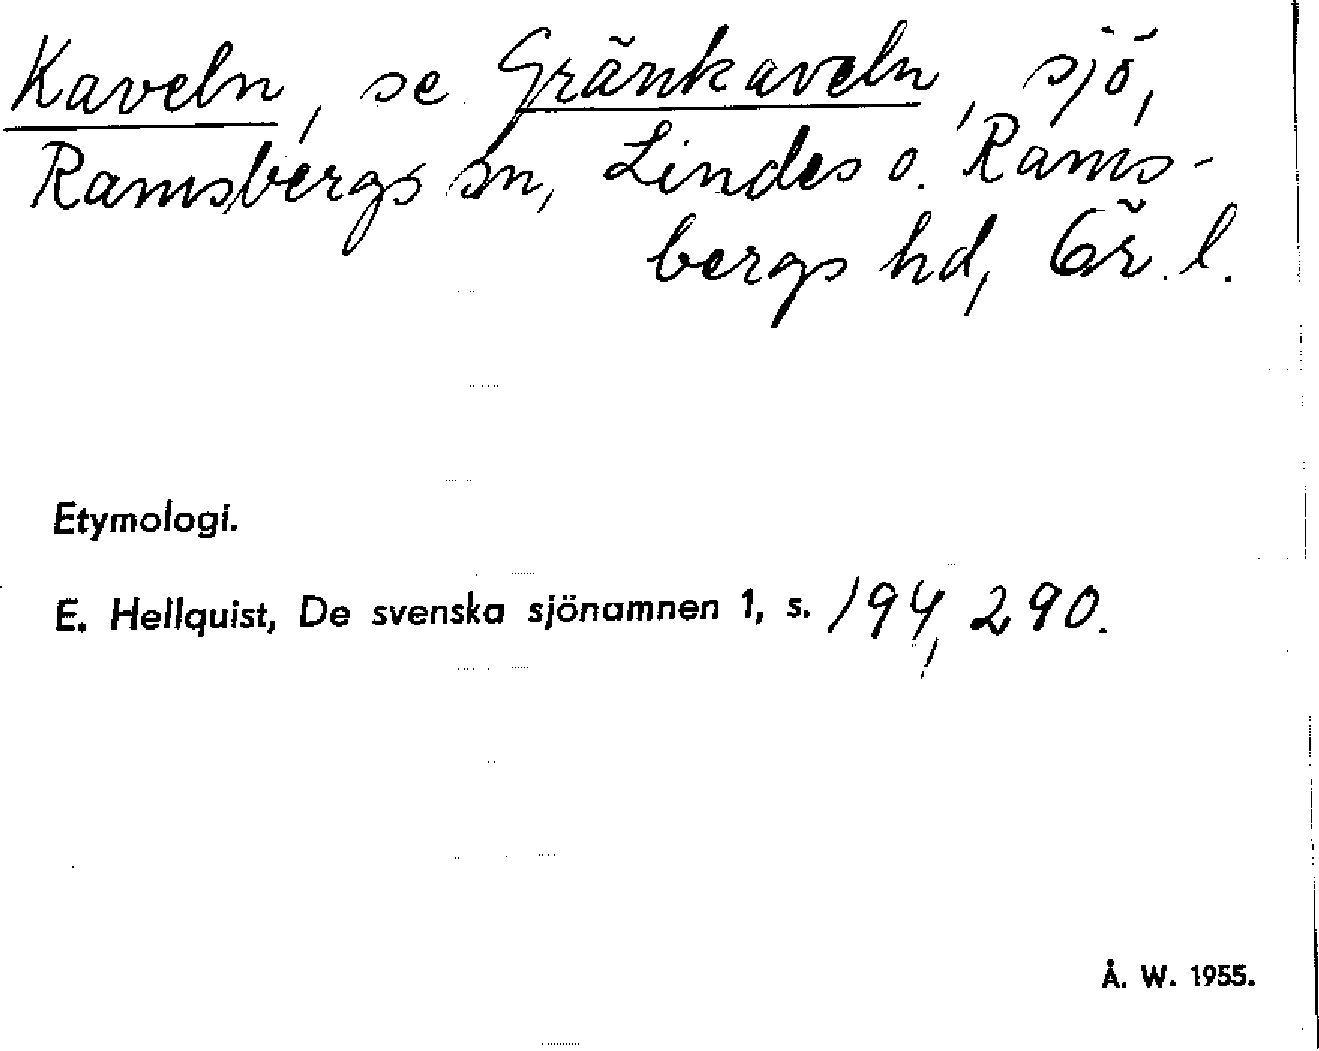 Kaveln, se Gränkaveln, sjö,
Ramsbergs sn, Lindes o. Rams-
bergs hd, Ör. l.
Etymologi.
E. Hellquist, De svenska sjönamnen 1, s. 194, 290.
Å. W. 1955.